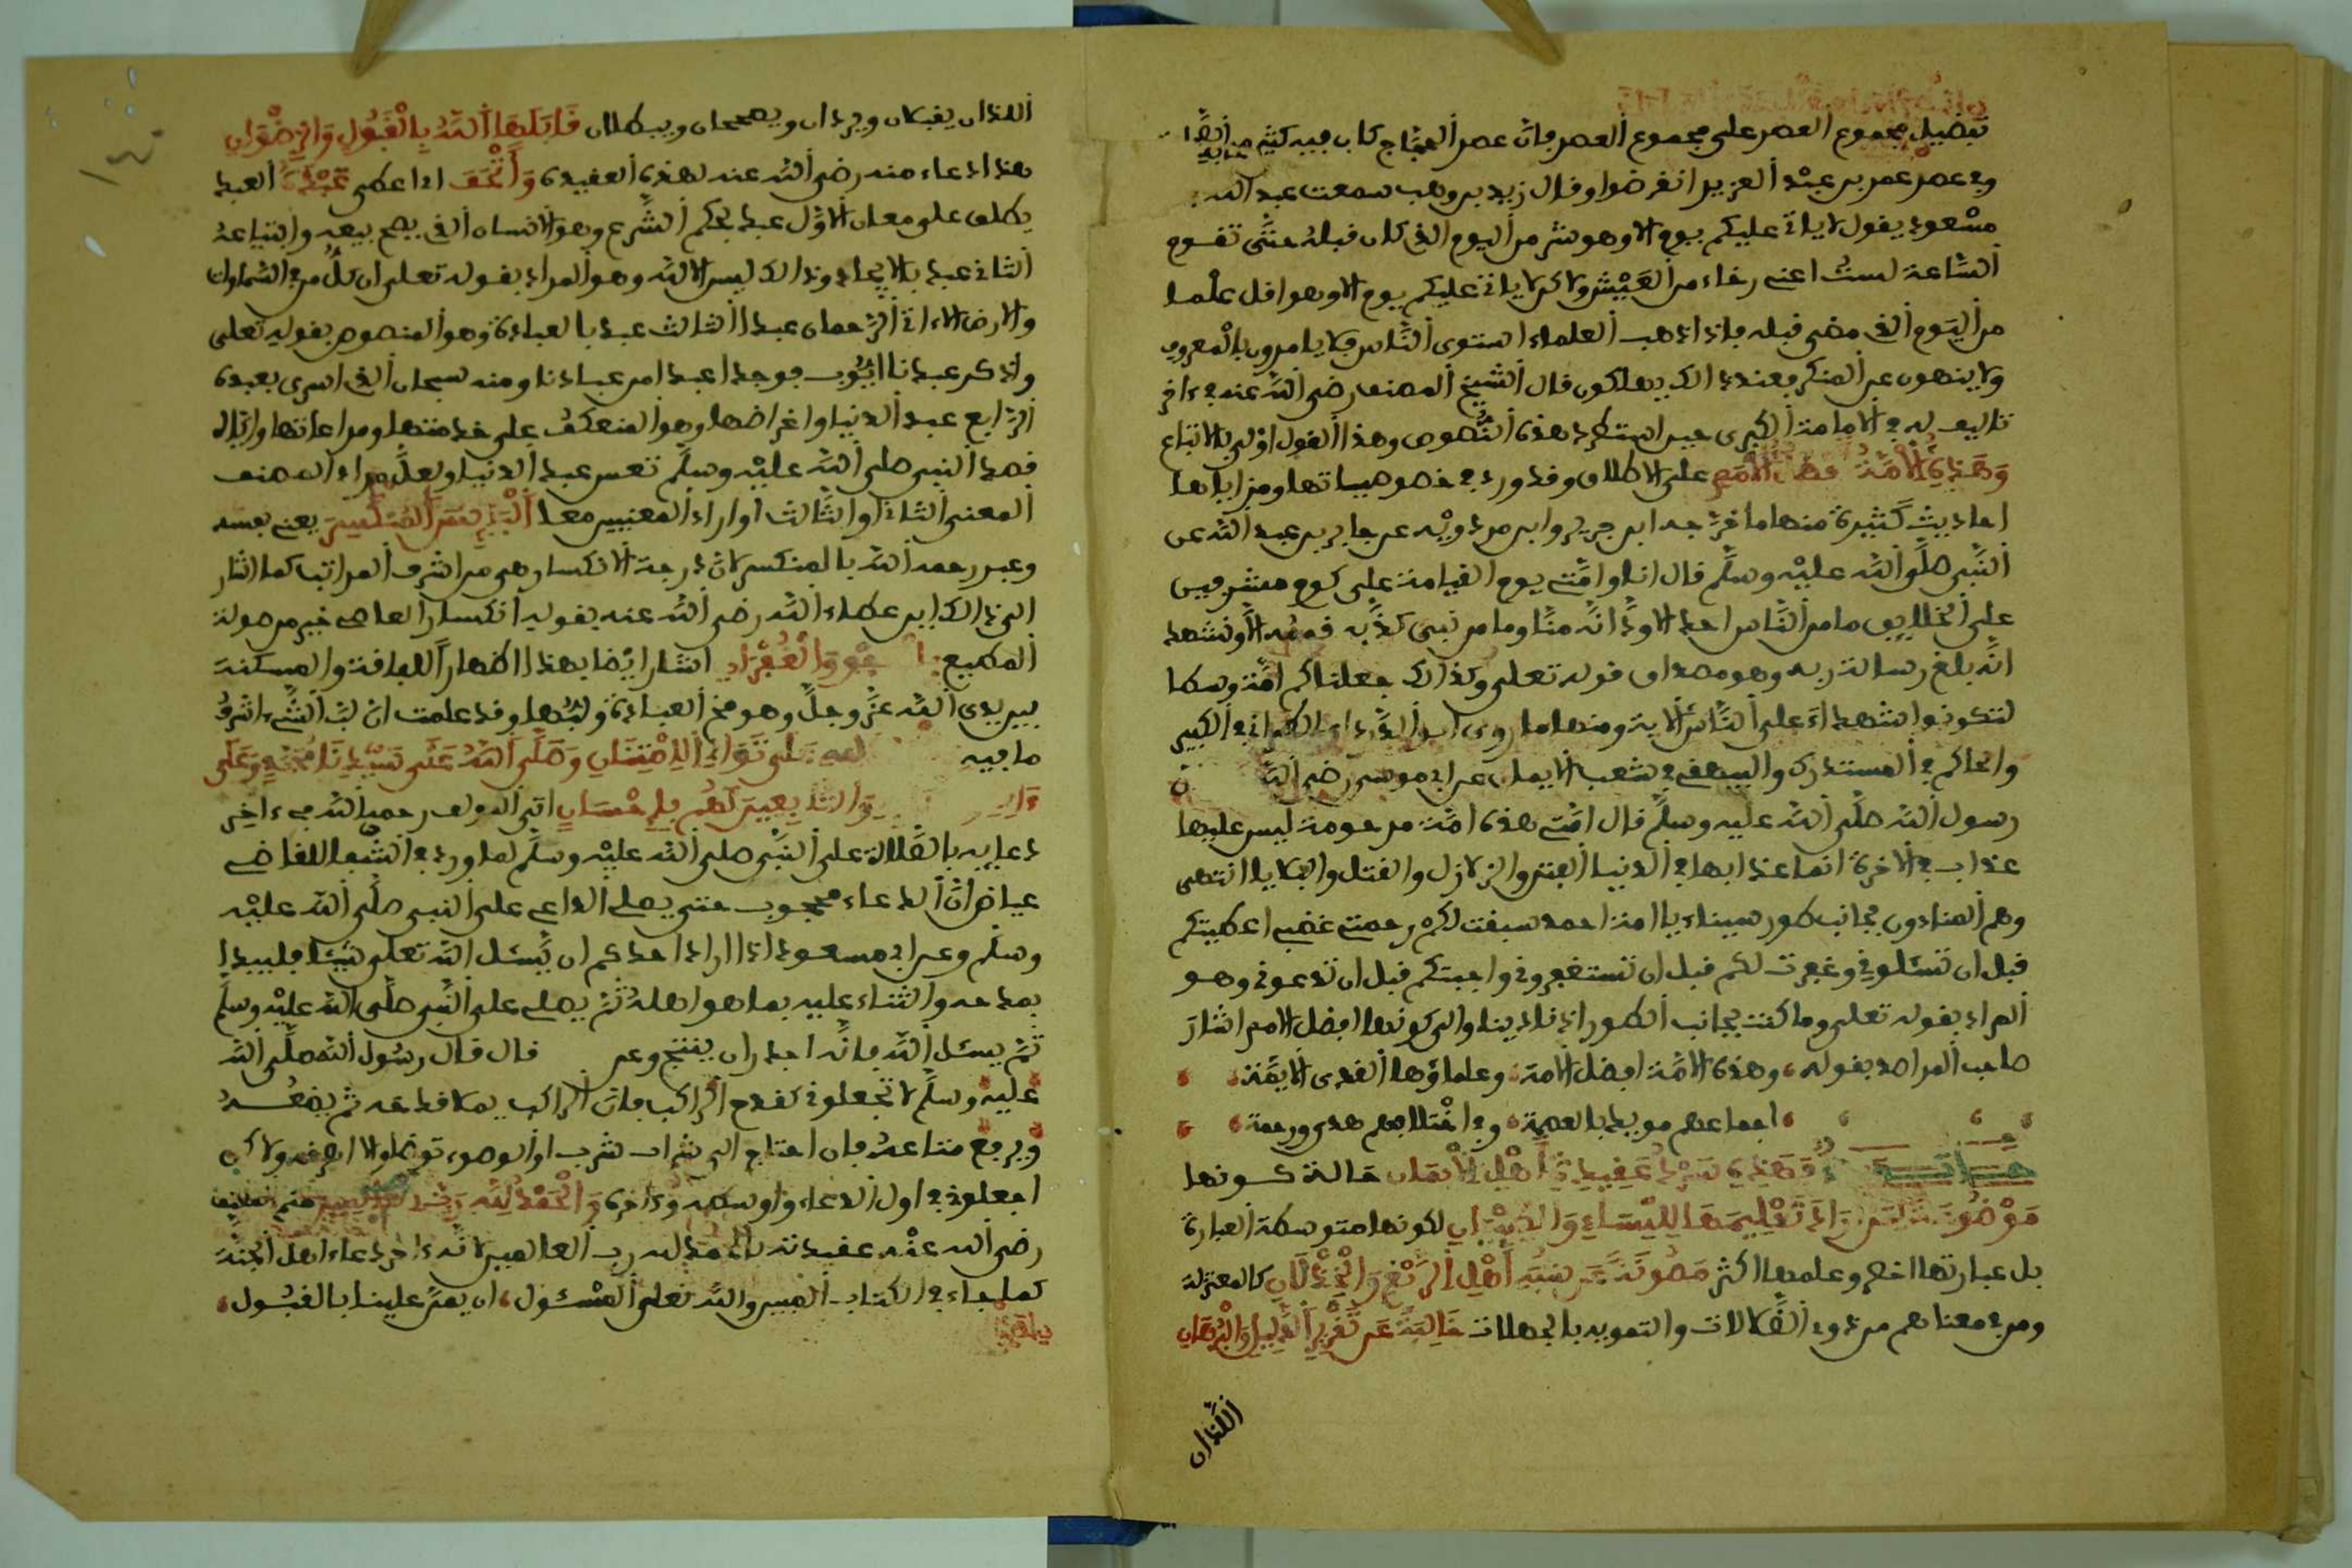 تفضيل مجموع العصر على مجموع العصر فان عصر الحجاج كان فيه كثير من الصحابة
وفي عصر عمر بن عبد العزيز انقرضوا وقال زيد بن وهب سمعت عبد الله بن
مسعود يقول لا ياتي عليكم يوم الا وهو شر من اليوم الذي كان قبله حتى تقوم
الساعة لست اعني رخاء من العيش ولاكن لا ياتي عليكم يوم الا وهو اقل علما
من اليوم الذي مضى قبله فاذا ذهب العلماء استوى الناس فلا يامرون بالمعروف
ولا ينهون عن المنكر فعند ذالك يهلكون قال الشيخ المصنف رضي الله عنه في ءاخر
تاليف له في الامامة الكبرى حين استطرد هذه النصوص وهذا القول اولى بالاتباع
وَهَذِهِ الْأُمَّةُ الْأُمَمِ على الاطلاق وقد ورد في خصوصياتها ومزاياها
احاديث كثيرة منها ما خرجه ابن جرير وابن مردويه عن جابر بن عبد الله عن
النبي صلى الله عليه وسلم قال انا وامتي يوم القيامة على كوم مشرفين
على الخلايق ما من الناس احد الا ود انه منا وما من نبي كذبه قومه الا ونشهد
انه بلغ رسالة ربه وهو مصداق قوله تعلى وكذالك جعلناكم امة وسطا
لتكونوا شهداء على الناس الاية ومنها ما روى ابو الدرداء الطبراني في الكبير
والحاكم في المستدرك والبيهقي في شعب الايمان عن ابي موسى رضي الله
رسول الله صلى الله عليه وسلم قال امتي هذه امة مرحومة ليس عليها
عذاب في الاخرة انما عذابها في الدنيا الفتن والزلازل والقتل والبلايا انتهى
وهم المنادون بجانب طور سيناء يا امة احمد سبقت لكم رحمتي غضبي اعطيتكم
قبل ان تسئلوني وغفرت لكم قبل ان تستغفروني واجبتكم قبل ان تدعوني وهو
المراد بقوله تعلى وما كنت بجانب الطور اذ نادينا والى كونها افضل الامم اشار
صاحب المراصد بقوله، وهذه الامة افضل الامة، وعلماؤها الهدى الايمة،
، اجماعهم مويد بالعصمة، وفي اختلافهم هدى ورحمة،
فَهَذِهِ عَقِيدَةُ أَهْلِ الْإِيمَانِ حالة كونها
مَوْضُوعَةً لِمَنْ أَرَادَ تَعْلِيمَهَا لِلنِّسَاءِ وَالصِّبْيَانِ لكونها متوسطة العبارة
بل عبارتها اخص وعلمها اكثر مَصُونَةً عَن شُبَهِ أَهْلِ الزَّيْغِ وَالْخِذْلَانِ كالمعتزلة
ومن في معناهم من ذوي الضلالات والتمويه بالجهالات خَالِيَةً عَن تَقْرِيرِ الدَّلِيلِ وَالْبُرْهَانِ
اللذان
اللذان يقبلان ويردان ويصححان ويبطلان قَابَلَهَا اللَّهُ بِالْقَبُولِ وَالرِّضْوَانِ
هذا دعاء منه رضي الله عنه لهذه العقيدة وَأَتْحَفَ اي اعطى عَبْدَهُ العبد
يطلق على معان الاول عبد بحكم الشرع وهو الانسان الذي يصح بيعه وابتياعه
الثاني عبد بالايجاد وذالك ليس الا لله وهو المراد بقوله تعلى ان كل من في السماوات
والارض الا ءاتي الرحمان عبدا الثالث عبد بالعبادة وهو المنصوص بقوله تعلى
واذكر عبدنا ايوب فوجدا عبدا من عبادنا ومنه سبحان الذي اسرى بعبده
الرابع عبد الدنيا واغراضها وهو المنعكف على خدمتها ومراعاتها واياه
قصد النبي صلى الله عليه وسلم تعس عبد الدنيا ولعل مراد المصنف
المعنى الثاني او الثالث او اراد المعنيين معا الْمُنْكَسِرَ يعني نفسه
وعبر رحمه الله بالمنكسر لان درجة الانكسار هي من اشرف المراتب كما اشار
الى ذالك ابن عطاء الله رضي الله عنه بقوله انكسار العاصي خير من صولة
المطيع وَالْغُفْرَانِ اشار ايضا بهذا اظهارا للفاقة والمسكنة
بين يدي الله عز وجل وهو مخ العبادة ولبها وقد علمت ان لب الشيء اشرف
ما فيه عَلَى تَوَالِي الِامْتِنَانِ وَصَلَّى اللَّهُ عَلَى سَيِّدِنَا مُحَمَّدٍ وَعَلَى
وَالتَّابِعِينَ لَهُم بِإِحْسَانٍ اتى المولف رحمه الله في ءاخر
دعايه بالصلاة على النبي صلى الله عليه وسلم لما ورد في الشفا للقاضي
عياض ان الدعاء محجوب حتى يصلي الداعي على النبي صلى الله عليه
وسلم وعن ابن مسعود اذا اراد احدكم ان يسئل الله تعلى شيئا فليبدا
بمدحه والثناء عليه بما هو اهله ثم يصلي على النبي صلى الله عليه وسلم
ثم يسئل الله فانه اجدر ان ينجح وعن قال قال رسول الله صلى الله
عليه وسلم لا تجعلوني كقدح الراكب فان الراكب يملا قدحه ثم يضعه
ويرفع متاعه فان احتاج الى شراب شرب او الوضوء توضا والا اهرقه ولاكن
اجعلوني في اول الدعاء واوسطه وءاخره وَالْحَمْدُ لِلَّهِ رَبِّ الْعَالَمِينَ ختم المصنف
رضي الله عنه عقيدته بالحمد لله رب العالمين لانه ءاخر دعاء اهل الجنة
كما جاء في الكتاب المبين والله تعلى المسئول، ان يمن علينا بالقبول،